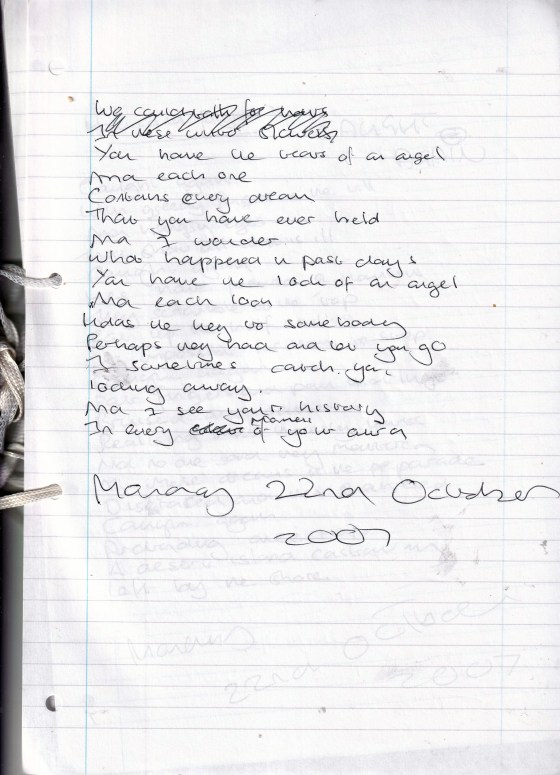 We could talk for hours
In these winter
You have the tears of an angel
And each one
Contains every dream
That you have ever held
And I wonder
What happened in past days
You have the look of an angel
And each look
Holds the key to somebody
Perhaps they had and let you go
I sometimes catch you
looking away.
And I see your history
In every moment of your aura
Monday 22nd October
2007